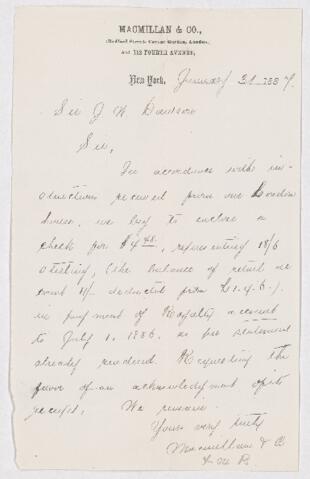 MACMILLAN & CO.,
Bedford Street, Covent Garden, London,
And 112 FOURTH AVENUE,
New York, January 31 1887.
Sir J W Dawson
Sir,
In accordance with in-
structions received from our London
house, we beg to enclose a
check for $4.48, representing 18/6
sterling, (the balance of retail ac
count 6/- deducted from £1.4.6.)
in payment of Royalty account
to July 1. 1886. as per statement
already rendered. Requesting the
favor of an acknowledgment of its
receipt, We remain
Yours very truly
Macmillan & Co